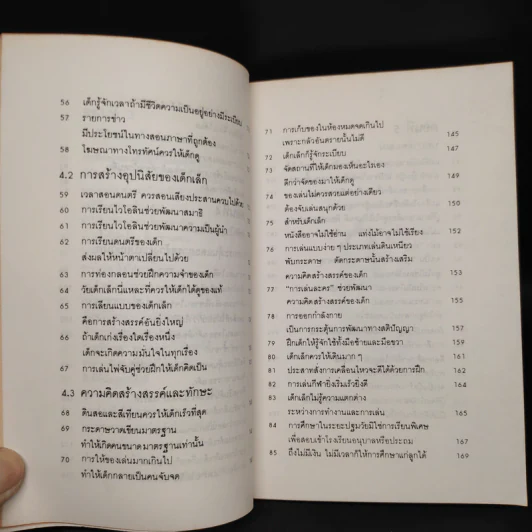 56 เด็กรู้จักเวลาถ้ามีชีวิตความเป็นอยู่อย่างมีระเบียบ
57 รายการข่าว
มีประโยชน์ในทางสอนภาษาที่ถูกต้อง
58 โฆษณาทางโทรทัศน์ควรให้เด็กดู
4.2 การสร้างอุปนิสัยของเด็กเล็ก
59 เวลาสอนดนตรี ควรสอนเสียงประสานควบไปด้วย
60 การเรียนไวโอลินช่วยพัฒนาสมาธิ
61 การเรียนไวโอลินช่วยพัฒนาความเป็นผู้นำ
62 การเรียนดนตรีของเด็ก
ส่งผลให้หน้าตาเปลี่ยนไปด้วย
63 การท่องกลอนช่วยฝึกความจำของเด็ก
64 วัยเด็กเล็กนี่แหละที่ควรให้เด็กได้ดูของแท้
65 การเลียนแบบของเด็กเล็ก
คือการสร้างสรรค์อันยิ่งใหญ่
66 ถ้าเด็กเก่งเรื่องใดเรื่องหนึ่ง
เด็กจะเกิดความมั่นใจในทุกเรื่อง
67 การเล่นไพ่จับคู่ช่วยฝึกให้เด็กคิดเป็น
4.3 ความคิดสร้างสรรค์และทักษะ
68 ดินสอและสีเทียนควรให้เด็กเร็วที่สุด
69 กระดาษวาดเขียนมาตรฐาน
ทำให้เกิดคนขนาดมาตรฐานเท่านั้น
70 การให้ของเล่นมากเกินไป
ทำให้เด็กกลายเป็นคนจับจด
71 การเก็บของในห้องหมดจดเกินไป
เพราะกลัวอันตรายนั้นไม่ดี 145
72 เด็กเล็กก็รู้จักระเบียบ 147
73 จัดสถานที่ให้เด็กมองเห็นอะไรเอง
ดีกว่าจัดของมาให้เด็กดู 149
74 ของเล่นไม่ควรสวยแต่อย่างเดียว
ต้องจับเล่นสนุกด้วย 150
75 สำหรับเด็กเล็ก
หนังสืออาจไม่ใช้อ่าน แท่งไม้อาจไม่ใช้เรียง 152
76 การเล่นแบบง่าย ๆ ประเภทเล่นดินเหนียว
พับกระดาษ ตัดกระดาษนั้นสร้างเสริม
ความคิดสร้างสรรค์ของเด็ก 153
77 "การเล่นละคร" ช่วยพัฒนา
ความคิดสร้างสรรค์ของเด็ก 155
78 การออกกำลังกาย
เป็นการกระตุ้นการพัฒนาทางสติปัญญา 157
79 ฝึกเด็กให้รู้จักใช้ทั้งมือซ้ายและมือขวา 159
80 เด็กเล็กควรให้เดินมาก ๆ 161
81 ประสาทสั่งการเคลื่อนไหวจะดีได้ด้วยการฝึก 162
82 การเล่นกีฬายิ่งเริ่มเร็วยิ่งดี 164
83 เด็กเล็กไม่รู้ความแตกต่าง
ระหว่างการทำงานและการเล่น 165
84 การศึกษาในระยะปฐมวัยมิใช่การเรียนพิเศษ
เพื่อสอบเข้าโรงเรียนอนุบาลหรือประถม 167
85 ถึงไม่มีเงิน ไม่มีเวลาก็ให้การศึกษาแก่ลูกได้ 169